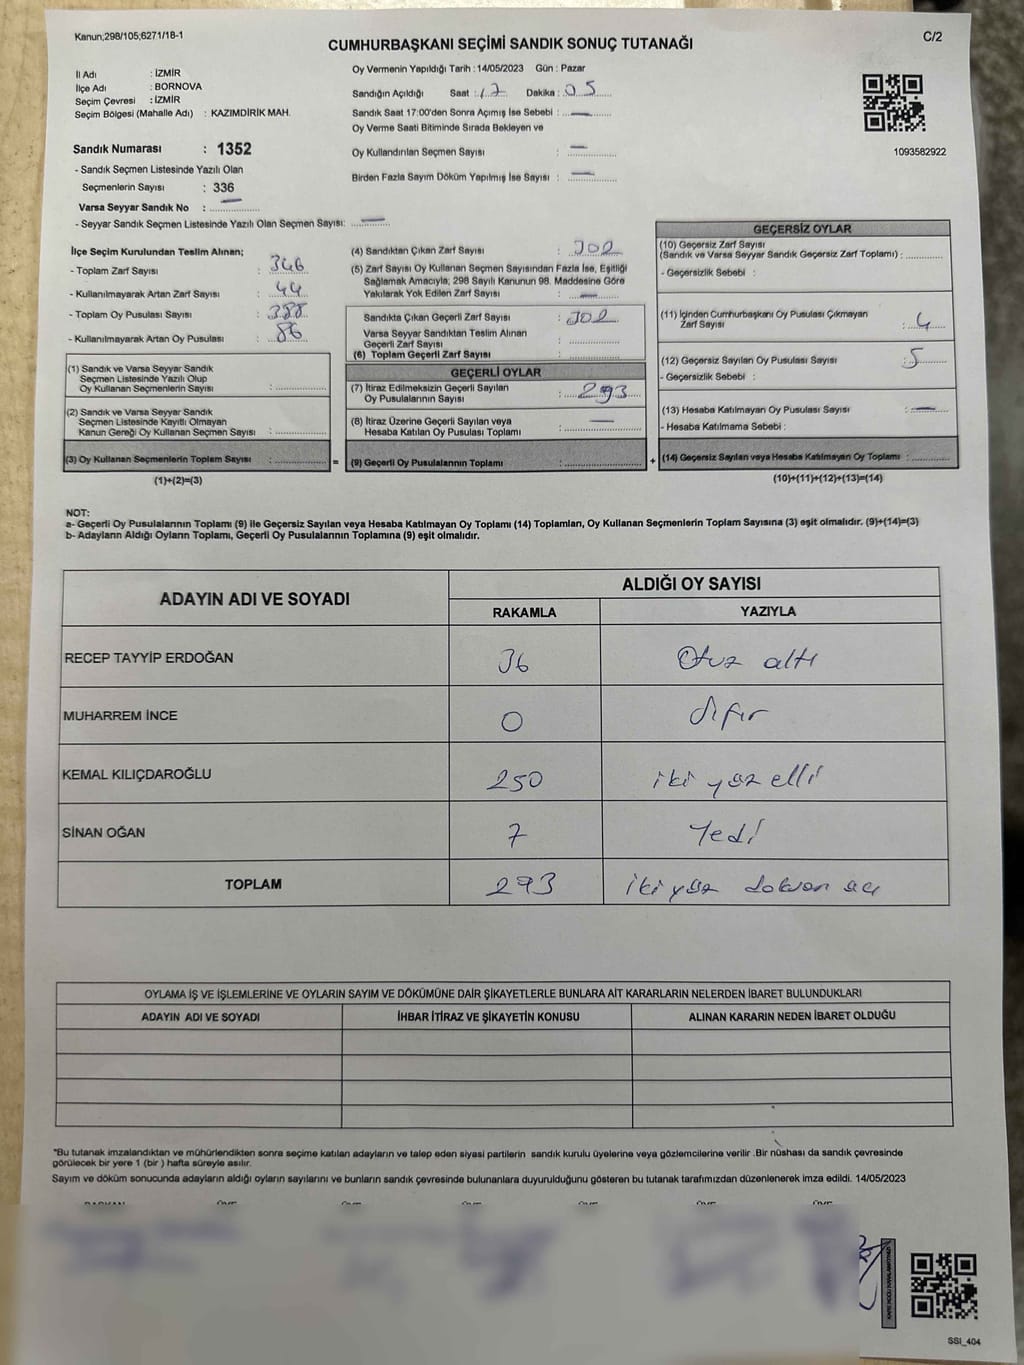 Kanun;298/105;6271/18-1
C/2
CUMHURBAŞKANI SEÇİMİ SANDIK SONUÇ TUTANAĞI
İl Adı : İZMİR
İlçe Adı : BORNOVA
Seçim Çevresi : İZMİR
Seçim Bölgesi (Mahalle Adı) : KAZIMDİRİK MAH.
Sandık Numarası : 1352
- Sandık Seçmen Listesinde Yazılı Olan
Seçmenlerin Sayısı : 336
Varsa Seyyar Sandık No : —
- Seyyar Sandık Seçmen Listesinde Yazılı Olan Seçmen Sayısı: —
Oy Vermenin Yapıldığı Tarih : 14/05/2023 Gün : Pazar
Sandığın Açıldığı Saat : 17 Dakika : 05
Sandık Saat 17:00'den Sonra Açımış İse Sebebi : —
Oy Verme Saati Bitiminde Sırada Bekleyen ve
Oy Kullandırılan Seçmen Sayısı : —
Birden Fazla Sayım Döküm Yapılmış İse Sayısı : —
1093582922
İlçe Seçim Kurulundan Teslim Alınan;
- Toplam Zarf Sayısı : 346
- Kullanılmayarak Artan Zarf Sayısı : 44
- Toplam Oy Pusulası Sayısı : 388
- Kullanılmayarak Artan Oy Pusulası : 86
(1) Sandık ve Varsa Seyyar Sandık
Seçmen Listesinde Yazılı Olup
Oy Kullanan Seçmenlerin Sayısı :
(2) Sandık ve Varsa Seyyar Sandık
Seçmen Listesinde Kayıtlı Olmayan
Kanun Gereği Oy Kullanan Seçmen Sayısı :
(3) Oy Kullanan Seçmenlerin Toplam Sayısı :
(1)+(2)=(3)
(4) Sandıktan Çıkan Zarf Sayısı : 302
(5) Zarf Sayısı Oy Kullanan Seçmen Sayısından Fazla İse, Eşitliği
Sağlamak Amacıyla; 298 Sayılı Kanunun 98. Maddesine Göre
Yakılarak Yok Edilen Zarf Sayısı : —
Sandıkta Çıkan Geçerli Zarf Sayısı : 302
Varsa Seyyar Sandıktan Teslim Alınan
Geçerli Zarf Sayısı :
(6) Toplam Geçerli Zarf Sayısı :
GEÇERLİ OYLAR
(7) İtiraz Edilmeksizin Geçerli Sayılan
Oy Pusulalarının Sayısı : 293
(8) İtiraz Üzerine Geçerli Sayılan veya
Hesaba Katılan Oy Pusulası Toplamı : —
= (9) Geçerli Oy Pusulalarının Toplamı :
GEÇERSİZ OYLAR
(10) Geçersiz Zarf Sayısı
(Sandık ve Varsa Seyyar Sandık Geçersiz Zarf Toplamı) :
- Geçersizlik Sebebi :
(11) İçinden Cumhurbaşkanı Oy Pusulası Çıkmayan
Zarf Sayısı : 4
(12) Geçersiz Sayılan Oy Pusulası Sayısı : 5
- Geçersizlik Sebebi :
(13) Hesaba Katılmayan Oy Pusulası Sayısı : —
- Hesaba Katılmama Sebebi :
+ (14) Geçersiz Sayılan veya Hesaba Katılmayan Oy Toplamı :
(10)+(11)+(12)+(13)=(14)
NOT:
a- Geçerli Oy Pusulalarının Toplamı (9) ile Geçersiz Sayılan veya Hesaba Katılmayan Oy Toplamı (14) Toplamları, Oy Kullanan Seçmenlerin Toplam Sayısına (3) eşit olmalıdır. (9)+(14)=(3)
b- Adayların Aldığı Oyların Toplamı, Geçerli Oy Pusulalarının Toplamına (9) eşit olmalıdır.
ADAYIN ADI VE SOYADI
ALDIĞI OY SAYISI
RAKAMLA YAZIYLA
RECEP TAYYİP ERDOĞAN 36 Otuz altı
MUHARREM İNCE 0 sıfır
KEMAL KILIÇDAROĞLU 250 iki yüz elli
SİNAN OĞAN 7 Yedi
TOPLAM 293 iki yüz doksan üç
OYLAMA İŞ VE İŞLEMLERİNE VE OYLARIN SAYIM VE DÖKÜMÜNE DAİR ŞİKAYETLERLE BUNLARA AİT KARARLARIN NELERDEN İBARET BULUNDUKLARI
ADAYIN ADI VE SOYADI İHBAR İTİRAZ VE ŞİKAYETİN KONUSU ALINAN KARARIN NEDEN İBARET OLDUĞU
*Bu tutanak imzalandıktan ve mühürlendikten sonra seçime katılan adayların ve talep eden siyasi partilerin sandık kurulu üyelerine veya gözlemcilerine verilir .Bir nüshası da sandık çevresinde
görülecek bir yere 1 (bir ) hafta süreyle asılır.
Sayım ve döküm sonucunda adayların aldığı oyların sayılarını ve bunların sandık çevresinde bulunanlara duyurulduğunu gösteren bu tutanak tarafımızdan düzenlenerek imza edildi. 14/05/2023
SSI_404